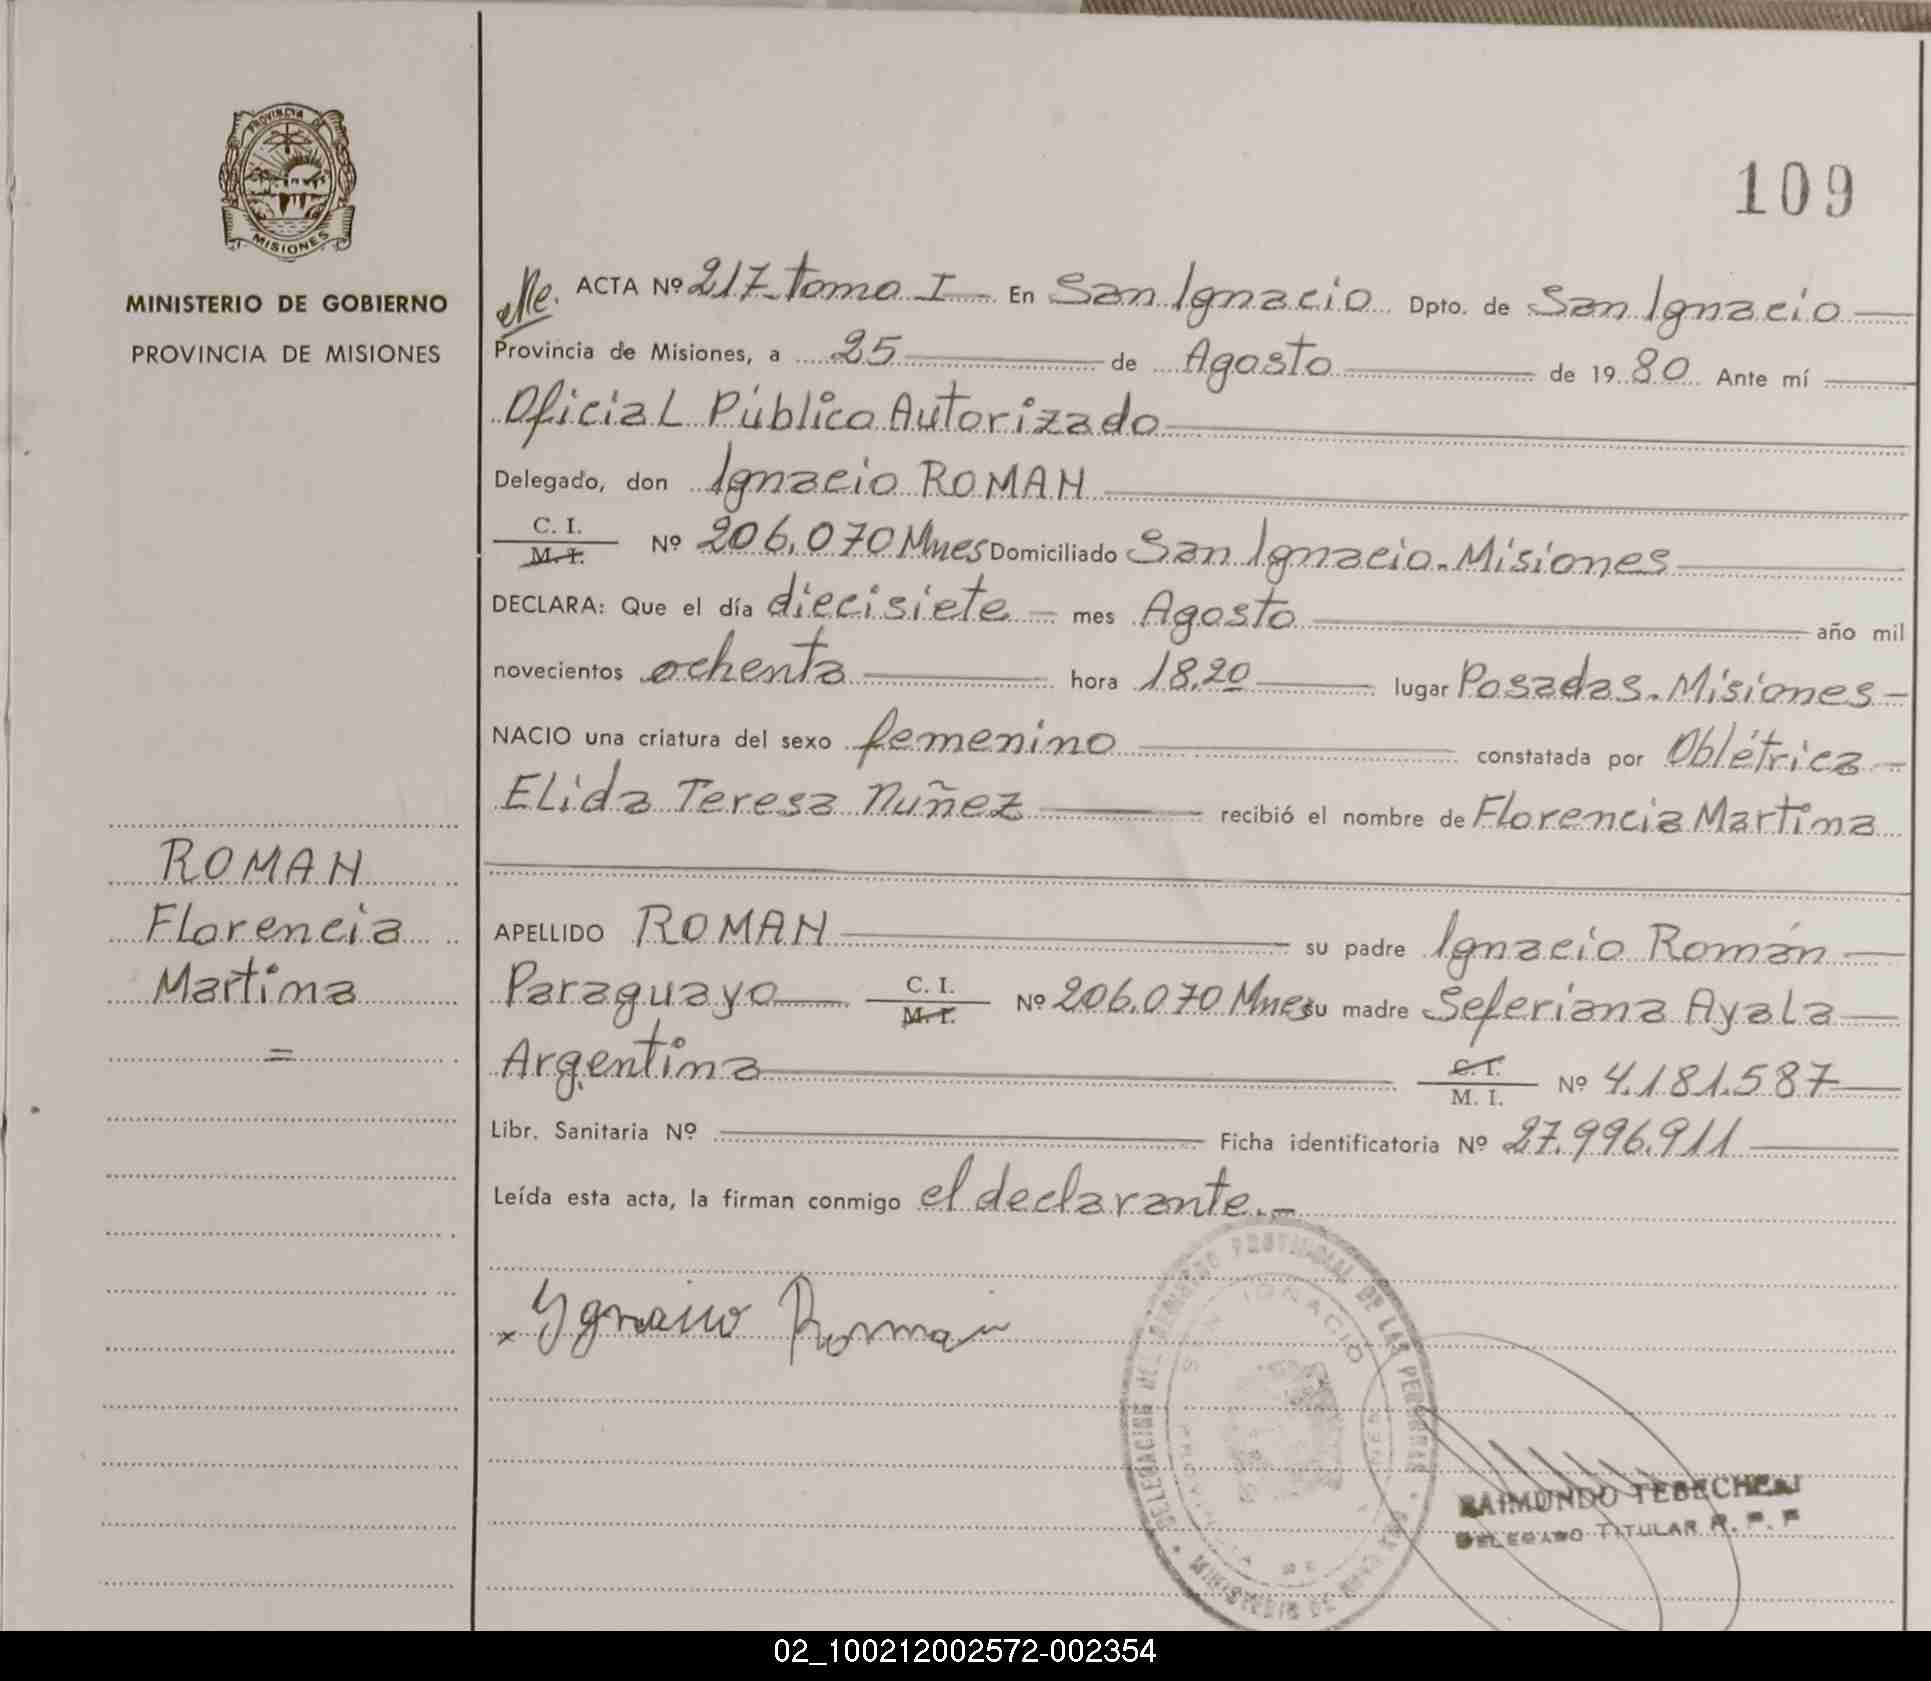 PROVINCIA DE
MISIONES
MINISTERIO DE GOBIERNO
PROVINCIA DE MISIONES
ROMAN
Florencia
Martina
=
109
ACTA Nº 217 tomo I En San Ignacio Dpto. de San Ignacio
Provincia de Misiones, a 25 de Agosto de 1980 Ante mí
Oficial Público Autorizado
Delegado, don Ignacio ROMAN
C. I.
M. I. Nº 206.070 Mnes Domiciliado San Ignacio. Misiones
DECLARA: Que el día diecisiete mes Agosto año mil
novecientos ochenta hora 18,20 lugar Posadas. Misiones
NACIO una criatura del sexo femenino constatada por Oblétrica
Elida Teresa Nuñez recibió el nombre de Florencia Martina
APELLIDO ROMAN su padre Ignacio Román
Paraguayo C. I. M. I. Nº 206.070 Mnes su madre Seferiana Ayala
Argentina C. I. M. I. Nº 4.181.587
Libr. Sanitaria Nº Ficha identificatoria Nº 27.996.911
Leída esta acta, la firman conmigo el declarante.-
x Ygnacio Roman
DELEGACION DEL REGISTRO PROVINCIAL DE LAS PERSONAS
SAN IGNACIO
PROVINCIA DE
MINISTERIO DE GOBIERNO
RAIMUNDO
DELEGADO TITULAR R. P. P
02_100212002572-002354